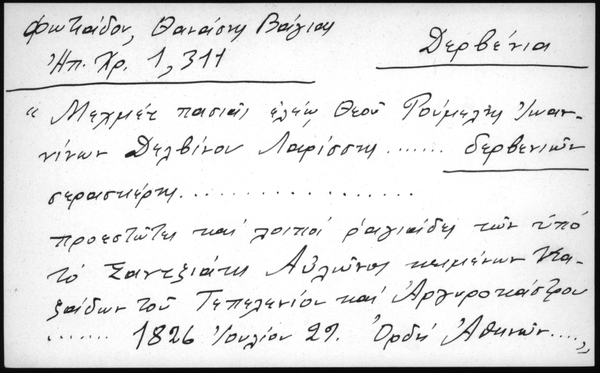 Φωτιάδου, Θανάσης Βάγιας
Ἠπ. Χρ. 1, 311
Δερβένια
“ Μεχμέτ πασιᾶς ἐλέῳ Θεοῦ Ρούμελης Ἰωαν-
νίνων Δελβίνου Λαρίσσης ...... δερβενιῶν
σερασκέρης..................
προεστῶτες καί λοιποί ραγιάδες τῶν ὑπό
τό Σαντζιάκι Αὐλῶνος κειμένων Κα-
ζάδων τοῦ Τεπελενίου καί Ἀργυροκάστρου
....... 1826 Ἰουλίου 29. Ὀρδί Ἀθηνῶν....,,